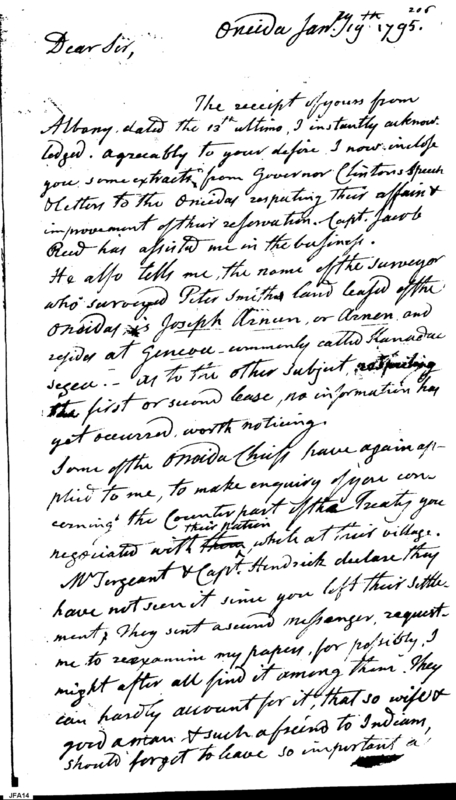 206
Oneida Jany. 19th 1795.
Dear Sir,
The receipt of yours from
Albany, dated the 13th ultimo, I instantly acknow
ledged. agreeably to your desire I now inclose
you some extracts from Governor Clintons Speech
& letters to the Oneidas respecting their affairs &
improvement of their reservation. Capt. Jacob
Reed has assisted me in the business.
He also tells me, the name of the surveyor
who surveyed Peter Smiths land leased of the
Oneidas, is Joseph Annin, or Arnen, and
resides at Geneva commonly called Kanadae
segea. — As to the other subject, respecting
the first or second lease, no information has
yet occurred, worth noticing.
Some of the Oneida Chiefs have again ap-
plied to me, to make enquiry of you con-
cerning the Counterpart of the Treaty you
their nation
negociated with them, while at their village.
Mr Sergeant & Capt. Hendrick declare they
have not seen it since you left their settle
ment; They sent a second messenger, request-
me to reexamine my papers, for possibly I
might after all find it among them. They
can hardly account for it, that so wise &
good a man & such a friend to Indians,
should forget to leave so important a
JFA14